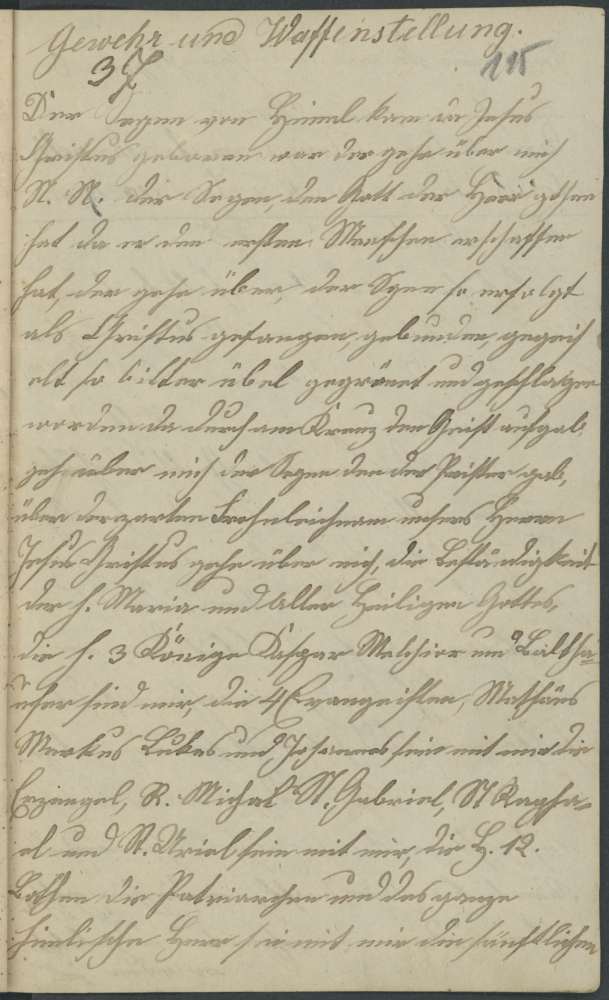 Gewehr und Waffenstellung.
37 115
Der Segen von Himel kam da Jesus
Christus geboren war der gehe über mich
N. N. der Segen, den Gott der Herr gethan
hat da er den ersten Menschen erschaffen
hat, der gehe über, der Sgen so erfolgt
als Christus gefangen, gebunden, gegeiß
elt so bitter übel gegrönet und geschlagen
worden da durch am Kreuz den Geist aufgab
gehe über mich der Segen den der Prister gab,
über der zarten Frohnleichnam unsers Herrn
Jesus Christus gehe über mich, die Beständigkeit
der h. Maria und aller Heiligen Gottes,
die h. 3 Könige Kaspar Melchior und Baltha
user sind mir, die 4 Evangeisten, Mathäus
Markus Lukas und Johannes sein mit mir die
Erzengel, St. Michal St. Gabriel, St Rapha-
el und St. Uriel sein mit mir, die H. 12.
Bothen die Patriarchen und das ganze
himlische Heer sei mit mir die sämtlichen